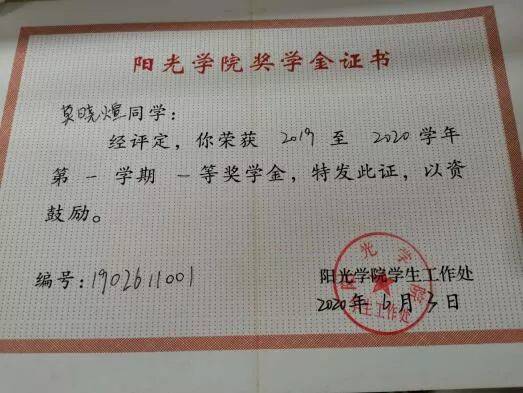 阳光学院奖学金证书
莫晓煊同学：
经评定，你荣获 2019 至 2020 学年
第 一 学期 一 等奖学金，特发此证，以资
鼓励。
编号：1902611001
阳光学院学生工作处
2020 年 6 月 3 日
阳光学院
学生工作处